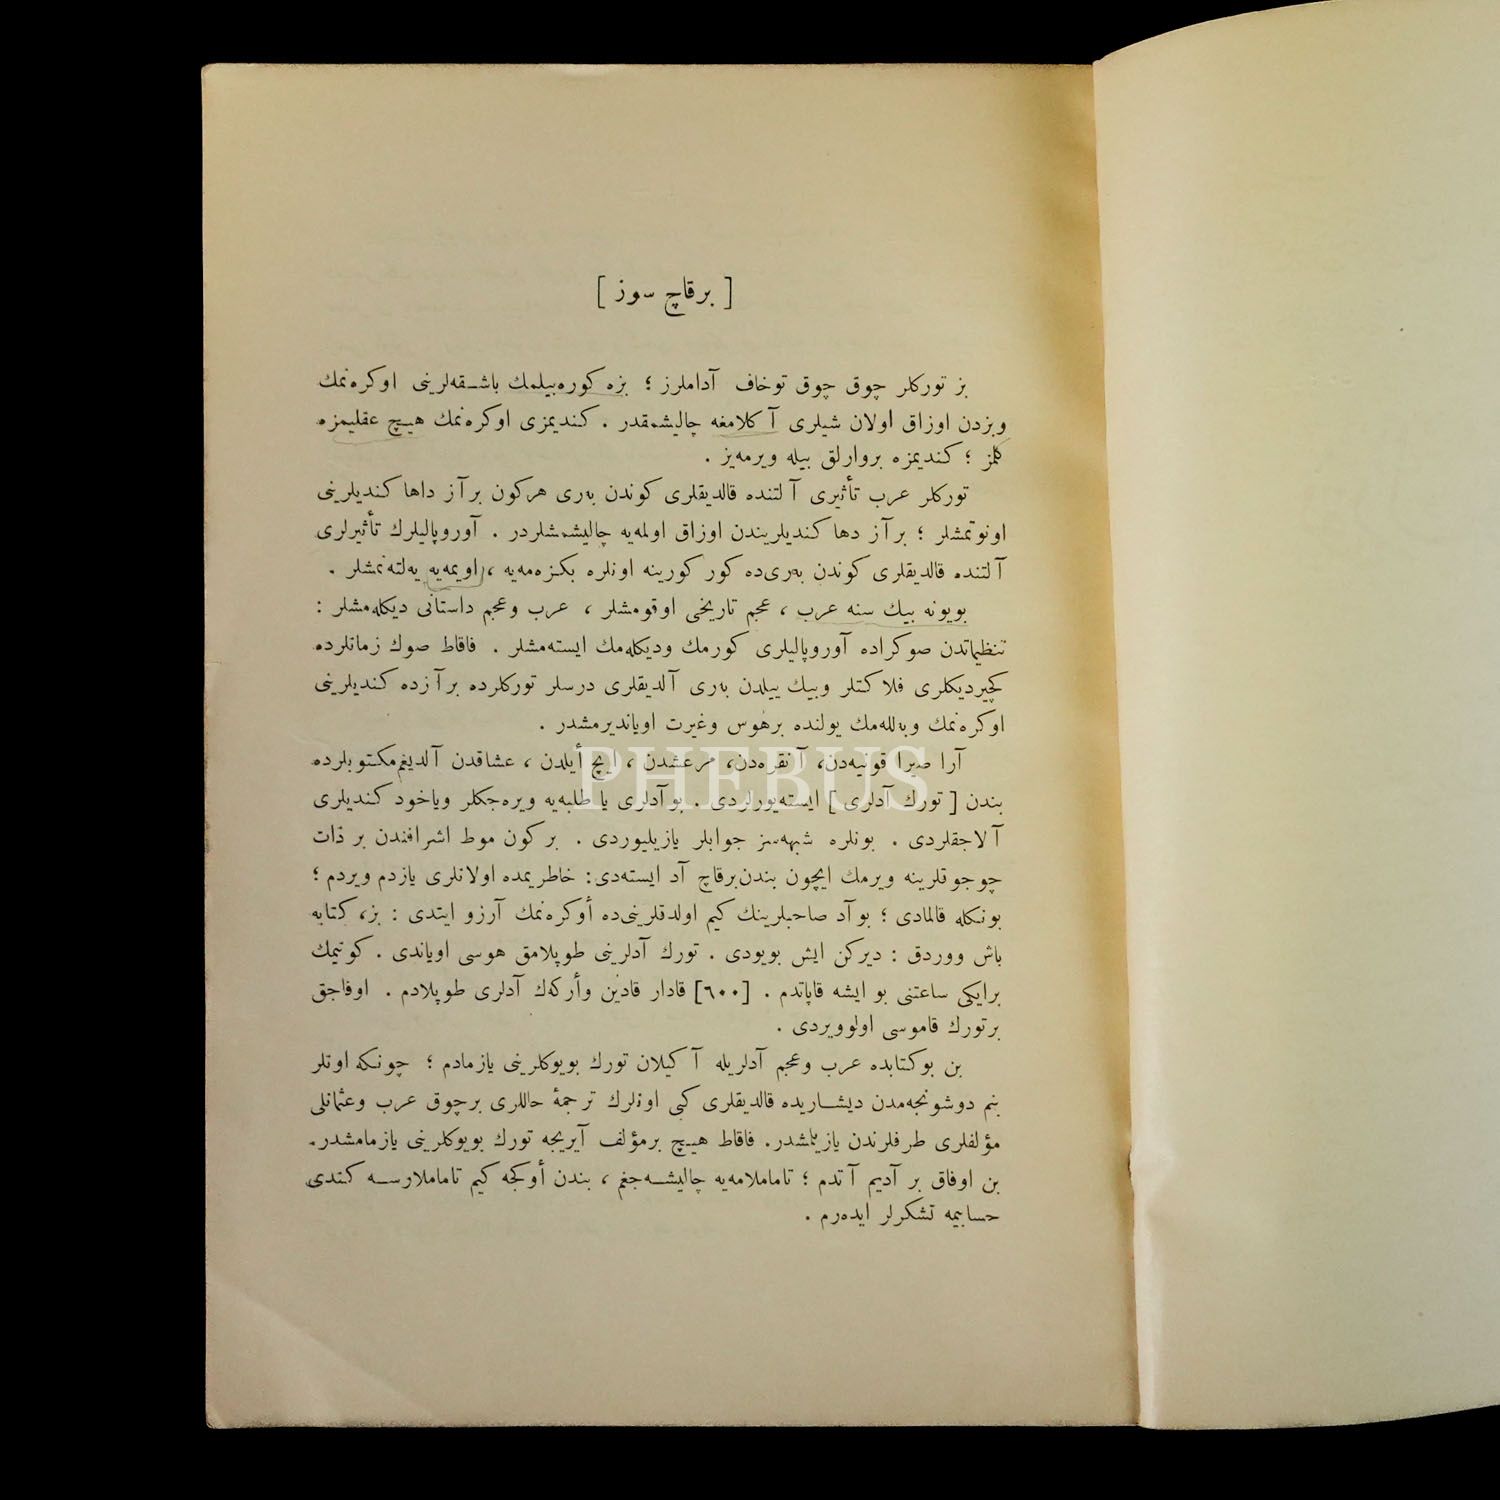 [ برقاچ سوز ]
بز توركلر چوق چوق توخاف آداملرز ؛ بزه كوره‌بيلمك باشـقه‌لرينى اوكره‌نمك
وبزدن اوزاق اولان شيلرى آكلامغه چاليشمقدر . كنديمزى اوكره‌نمك هيـچ عقليمزه
كلمز ؛ كنديمزه بروارلق بيله ويرمه‌يز .
توركلر عرب تأثيرى آلتنده قالديقلرى كوندن به‌رى هركون برآز داها كنديلرينى
اونوتمشلر ؛ برآز دها كنديلريندن اوزاق اولمه‌يه چاليشمشلردر . آوروپاليلرك تأثيرلرى
آلتنده قالديقلرى كوندن به‌رى‌ده كور كورينه اونلره بكزه‌مه‌يه ، اويمه‌يه يه‌لته‌نمشلر .
بويونه بيك سنه عرب ، عجم تاريخى اوقومشلر ، عرب وعجم داستانى ديكله‌مشلر :
تنظيماتدن صوكراده آوروپاليلرى كورمك وديكله‌مك ايسته‌مشلر . فاقاط صوك زمانلرده
كچيرديكلرى فلاكتلر وبيك ييلدن به‌رى آلديقلرى درسلر توركلرده برآزده كنديلرينى
اوكره‌نمك وبه‌لله‌مك يولنده برهوس وغيرت اوياندیرمشدر .
آرا صرا قونيه‌دن، آنقره‌دن، مرعشدن ، ايچ أيلدن ، عشاقدن آلديغم‌مكتوبلرده
بندن [ تورك آدلرى ] ايسته‌يورلردى . بوآدلرى يا طلبه‌يه ويره‌جكلر وياخود كنديلرى
آلاجقلردى . بونلره شبهه‌سز جوابلر يازيليوردى . بركون موط اشرافندن بر ذات
چوجوقلرينه ويرمك ايچون بندن‌برقاچ آد ايسته‌دى: خاطريمده اولانلرى يازدم ويردم ؛
بونكله قالمادى ؛ بوآد صاحبلرينك كيم اولدقلرينى‌ده أوكره‌نمك آرزو ايتدى : بز، كتابه
باش ووردق : ديركن ايش بويودى . تورك آدلرينى طوپلامق هوسى اوياندى . كوتيمك
برايكى ساعتنى بو ايشه قاپاتدم . [٦٠٠] قادار قادين وأركه‌ك آدلرى طوپلادم . اوفاجق
برتورك قاموسى اولوويردى .
بن بوكتابده عرب وعجم آدلريله آكيلان تورك بويوكلرينى يازمادم ؛ چونكه اونلر
بنم دوشونجه‌مدن ديشـاريده قالديقلرى كبى اونلرك ترجمهٔ حاللرى برچوق عرب وعثمانلى
مؤلفلرى طرفلرندن يازيلمشدر. فاقاط هيـچ برمؤلف آيريجه تورك بويوكلرينى يازمامشدر.
بن اوفاق بر آديم آتدم ؛ تاماملامه‌يه چاليشــه‌جغم ، بندن أوكجه كيم تاماملارســه كندى
حسابيمه تشكرلر ايده‌رم .
PHEBUS